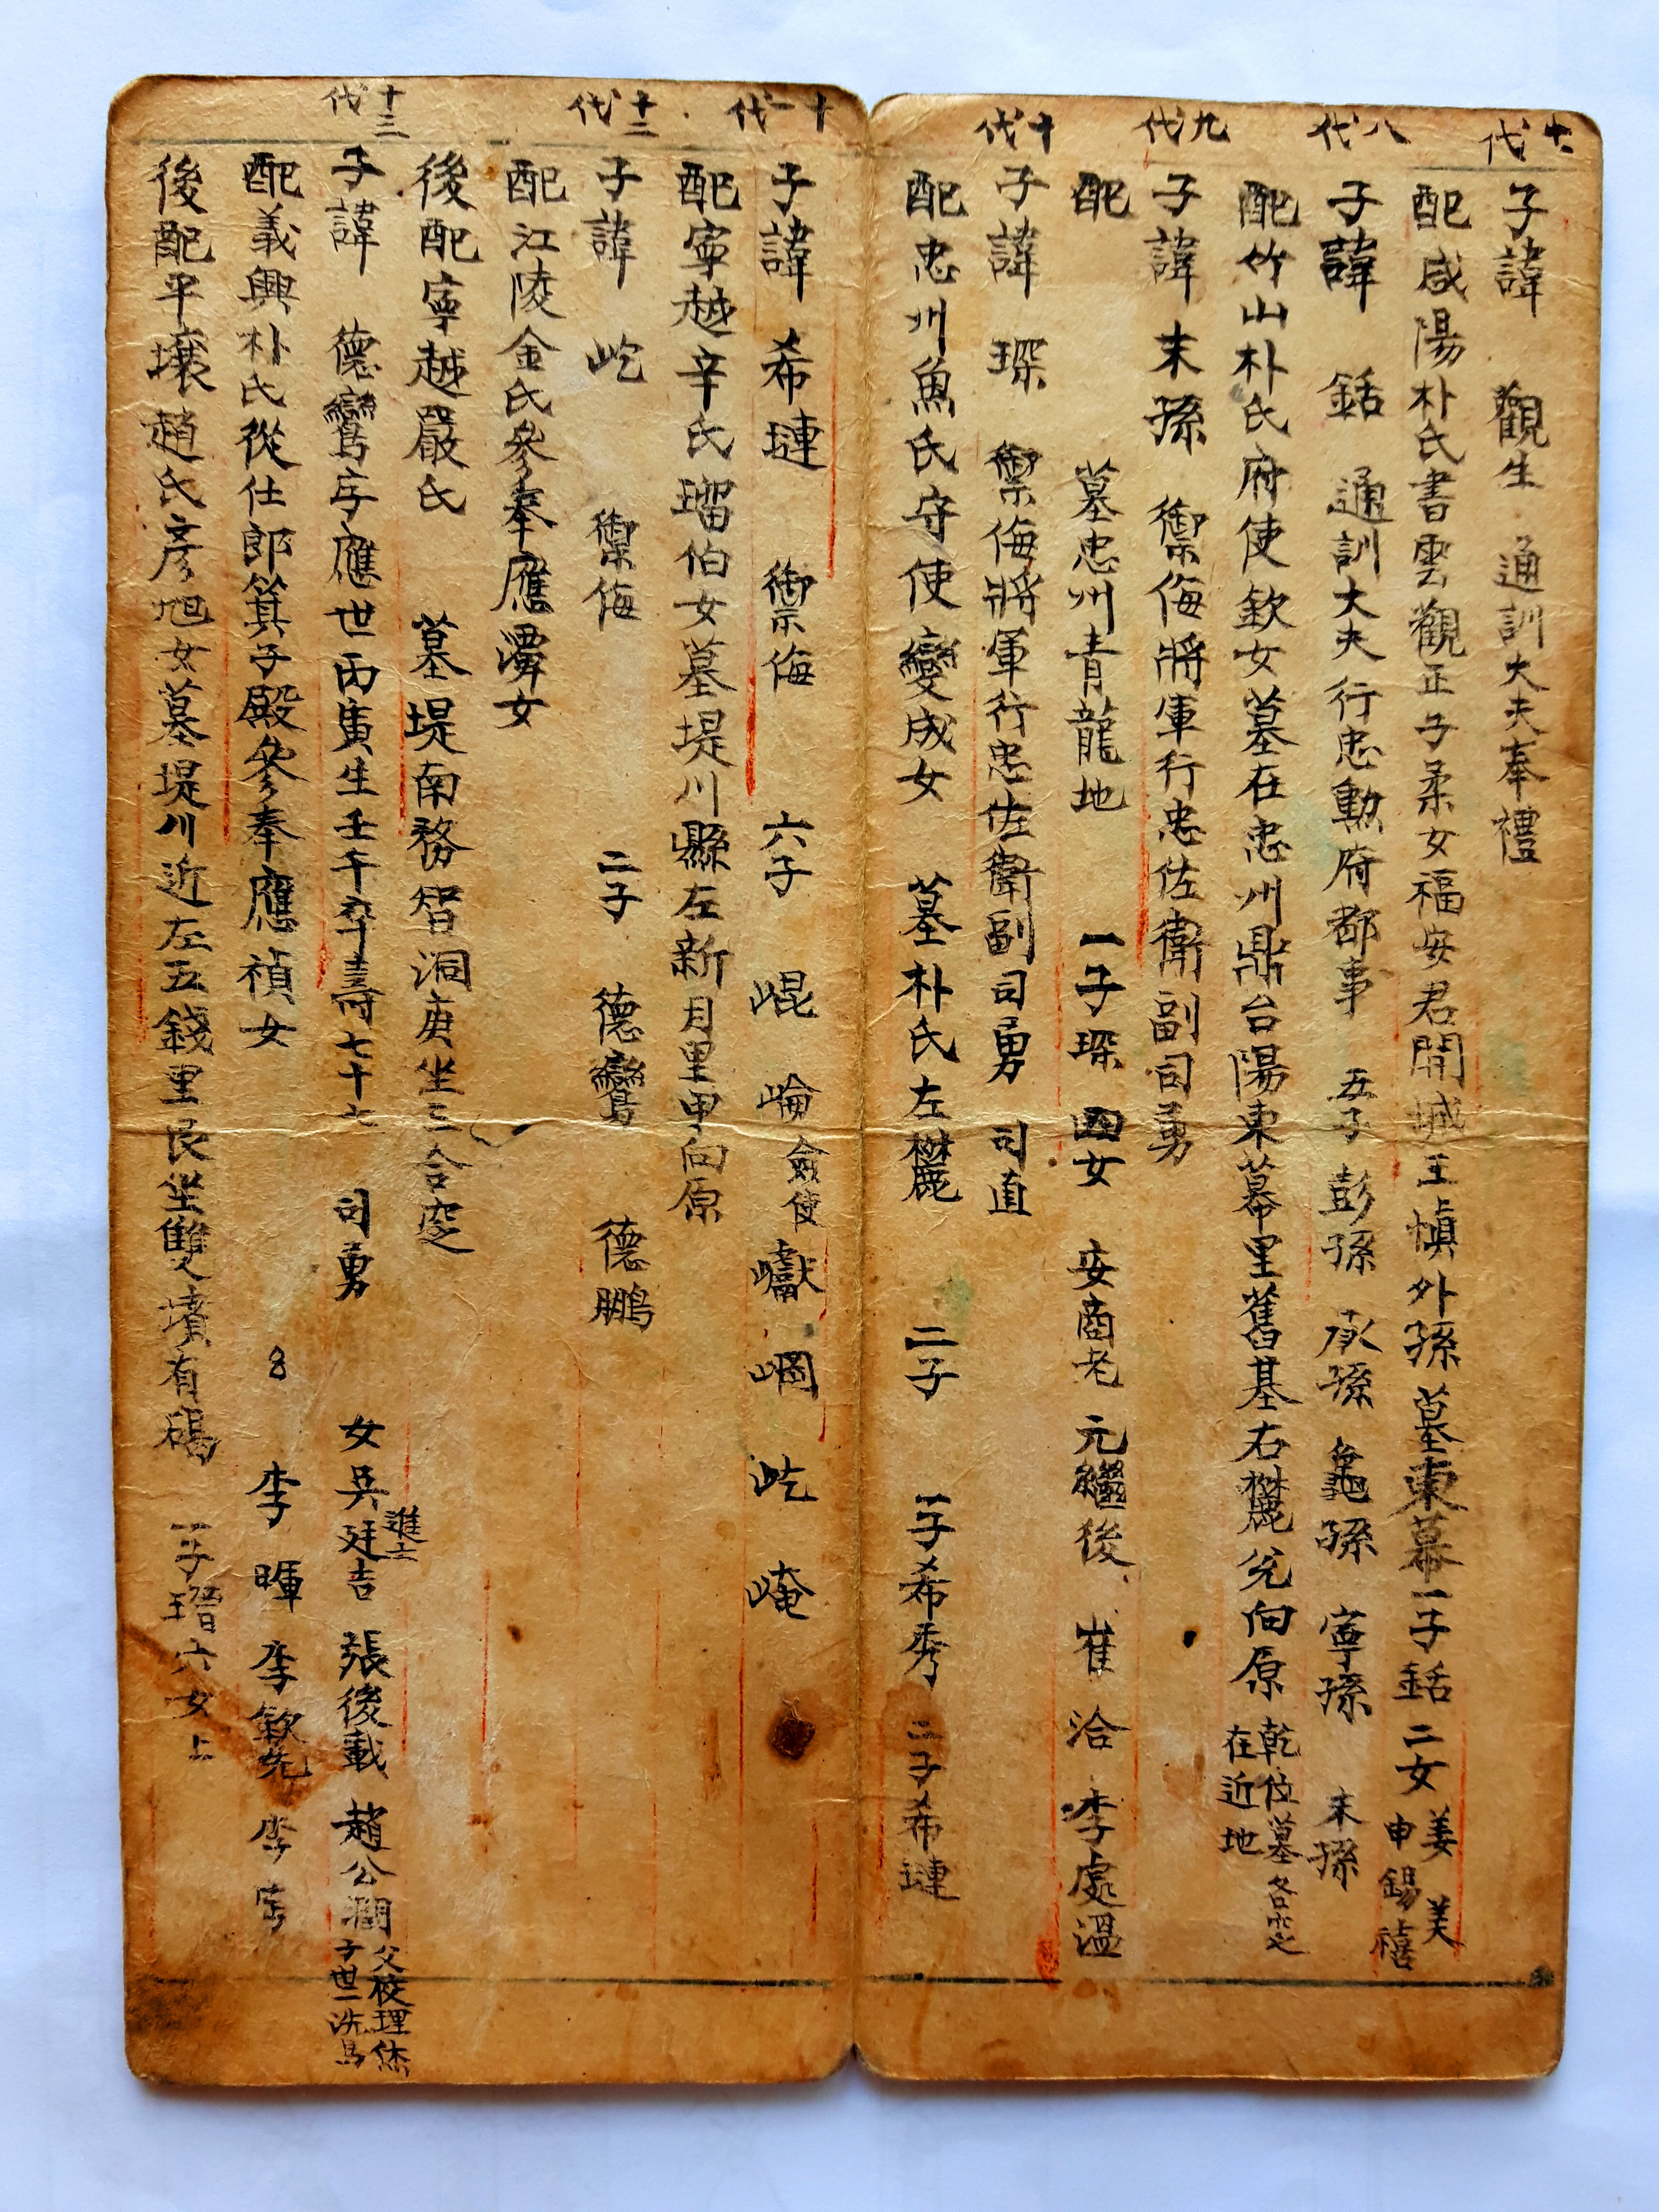 七代
子諱 觀生 通訓大夫奉禮
配咸陽朴氏書雲觀正子柔女福安君開城王慎外孫墓東幕一子銛二女 姜美 申錫禧
八代
子諱 銛 通訓大夫行忠勳府都事 五子 彭孫 承孫 龜孫 寧孫 末孫
配竹山朴氏府使欽女墓在忠州鼎台陽東幕里舊基右麓兌向原 乾位墓各穴 在近地
九代
子諱 末孫 禦侮將軍行忠佐衛副司勇
配 墓忠州青龍地 一子琛 四女 安商老 元繼後 崔洽 李處溫
十代
子諱 琛 禦侮將軍行忠佐衛副司勇 司直
配忠州魚氏守使變成女 墓朴氏左麓 二子 一子希秀 二子希璉
十一代
子諱 希璉 禦侮 六子 崐 崘僉使 巘 崓 屹 崦
配寧越辛氏瑠伯女墓堤川縣左新月里甲向原
十二代
子諱 屹 禦侮 二子 德鸞 德鵬
配江陵金氏參奉應濢女
後配寧越嚴氏 墓堤南務智洞庚坐三合窆
十三代
子諱 德鸞字應世丙寅生壬午卒壽七十七 司勇 女吳廷吉進士 張後載 趙公澗 父校理 子世一洗馬
配義興朴氏從仕郎箕子殿參奉應禎女 李暉 李欽先 李
後配平壤趙氏彥旭女墓堤川近左五錢里艮坐雙墳有碣 一子瑨六女上